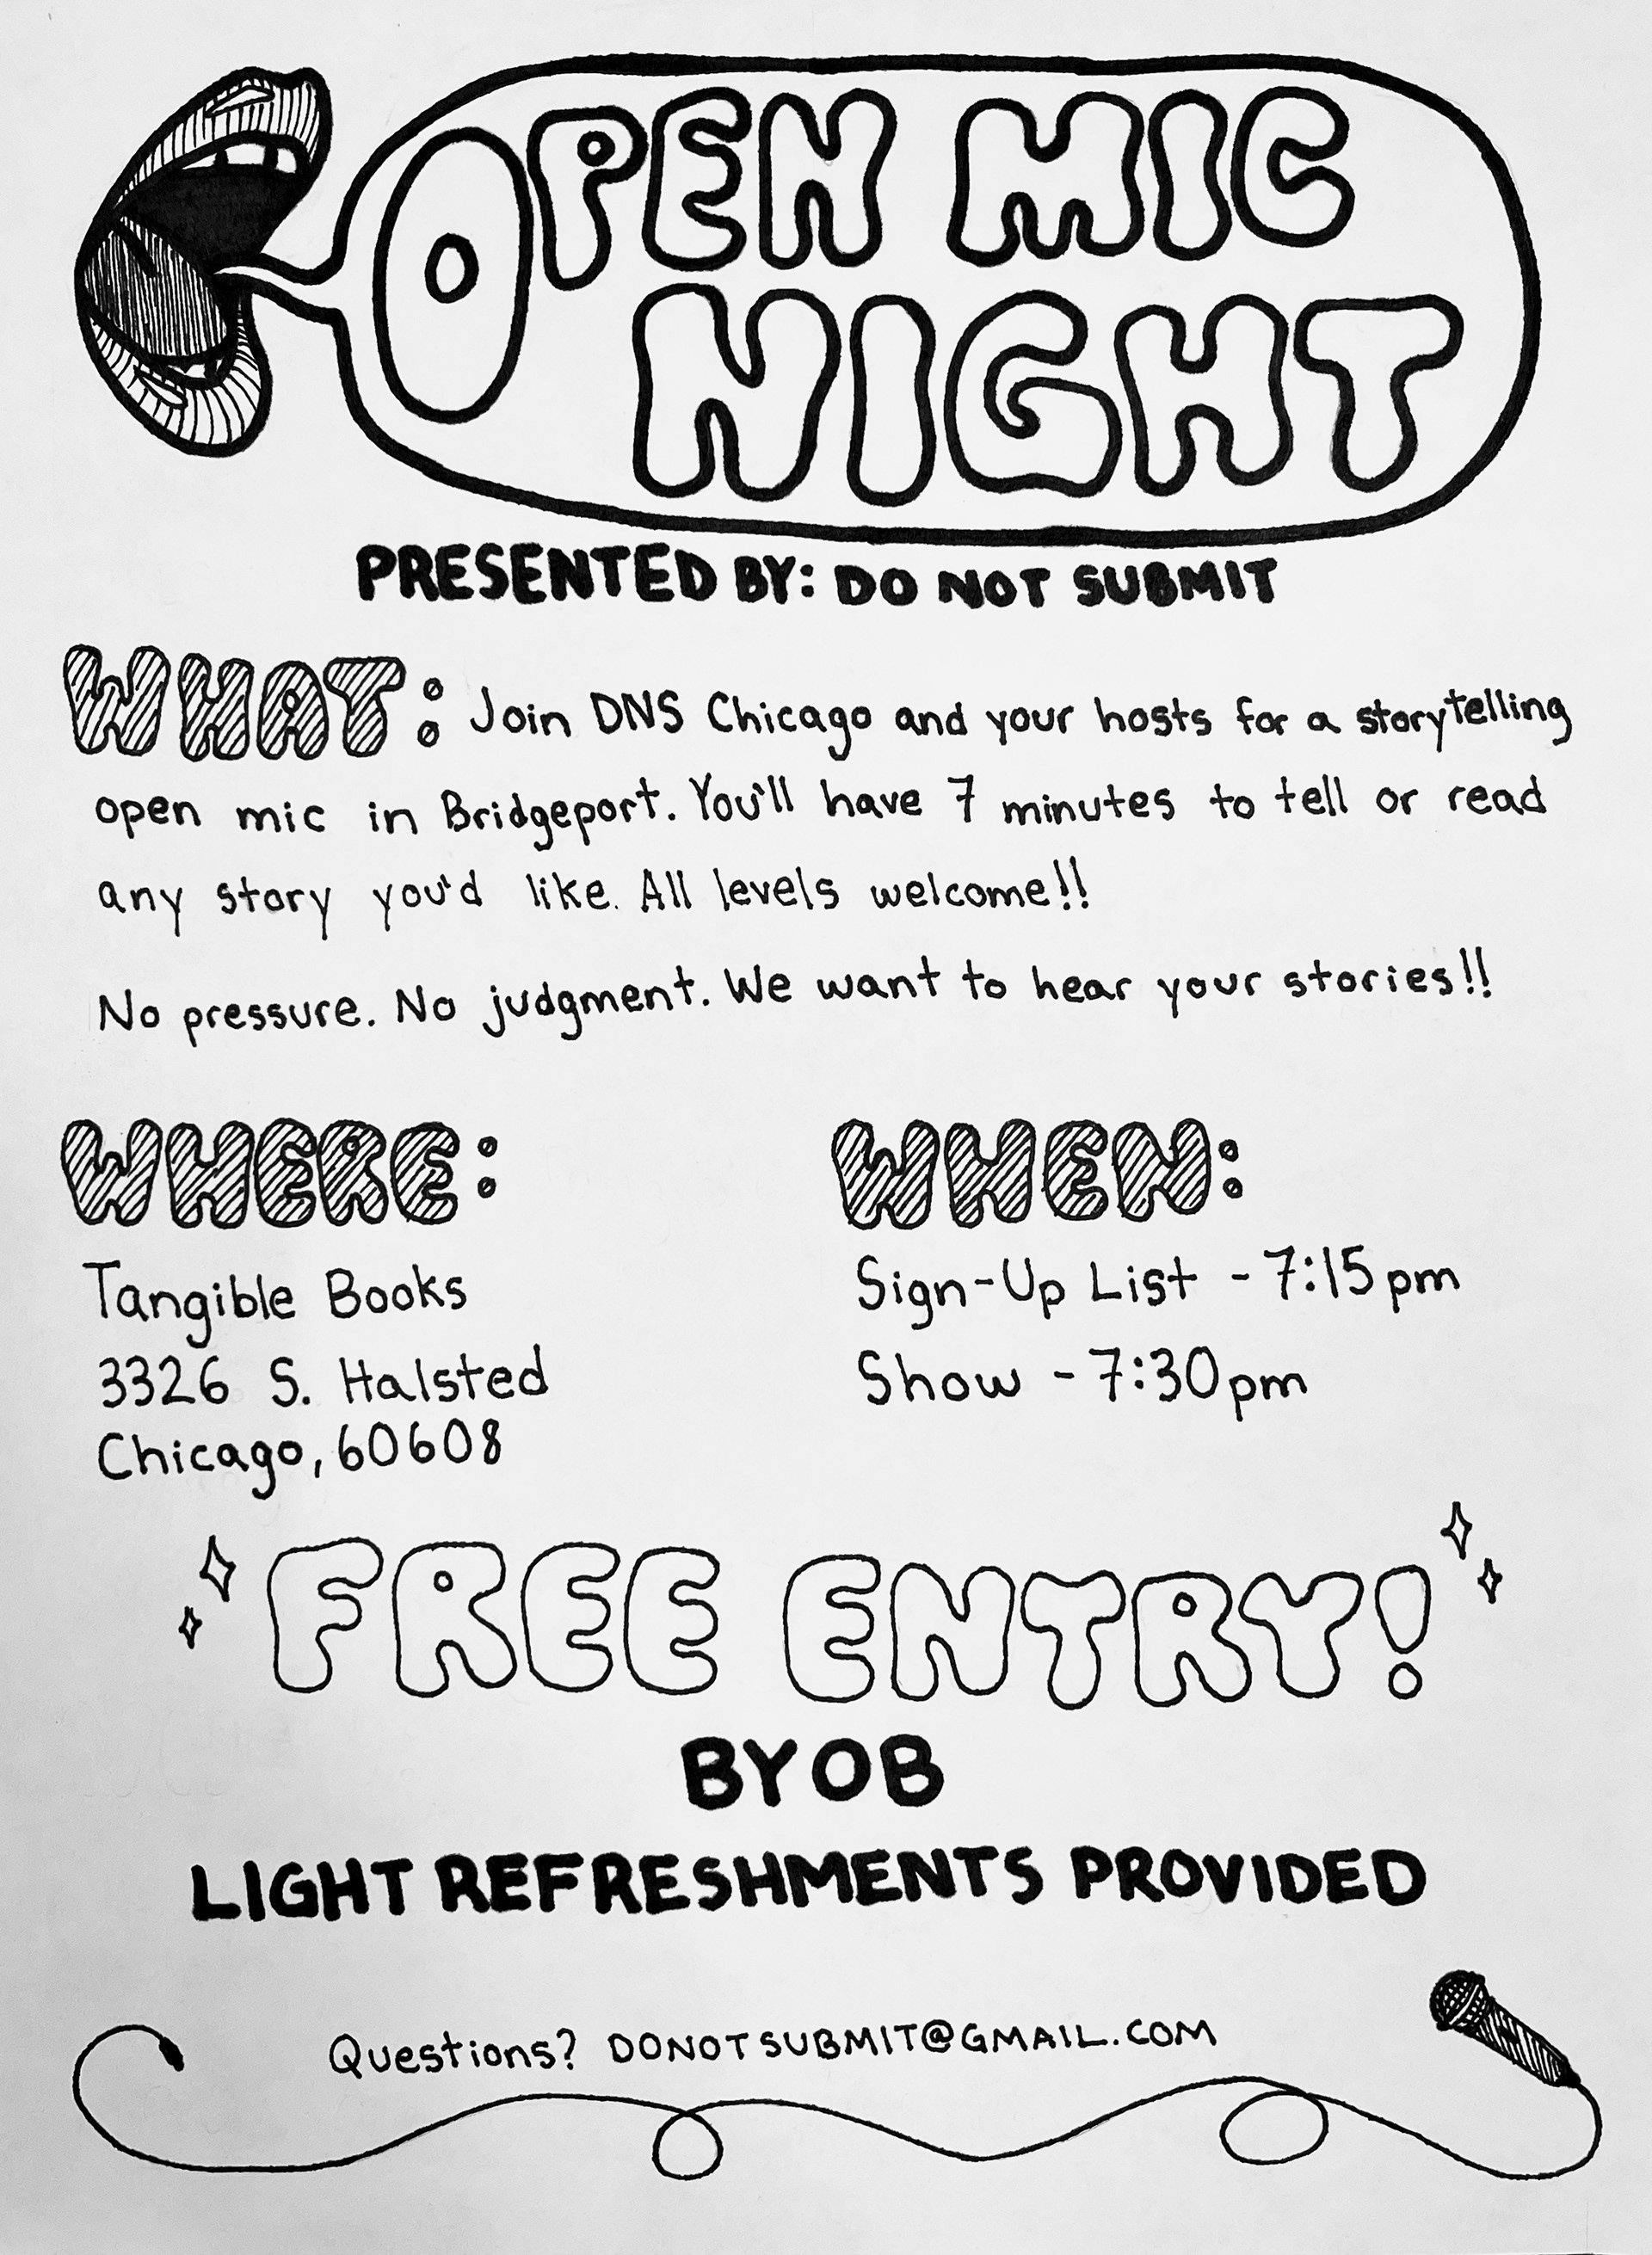 OPEN MIC
NIGHT
PRESENTED BY: DO NOT SUBMIT
WHAT: Join DNS Chicago and your hosts for a storytelling
open mic in Bridgeport. You'll have 7 minutes to tell or read
any story you'd like. All levels welcome!!
No pressure. No judgment. We want to hear your stories!!
WHERE:
Tangible Books
3326 S. Halsted
Chicago, 60608
WHEN:
Sign-Up List - 7:15pm
Show - 7:30pm
FREE ENTRY!
BYOB
LIGHT REFRESHMENTS PROVIDED
Questions? DONOTSUBMIT@GMAIL.COM